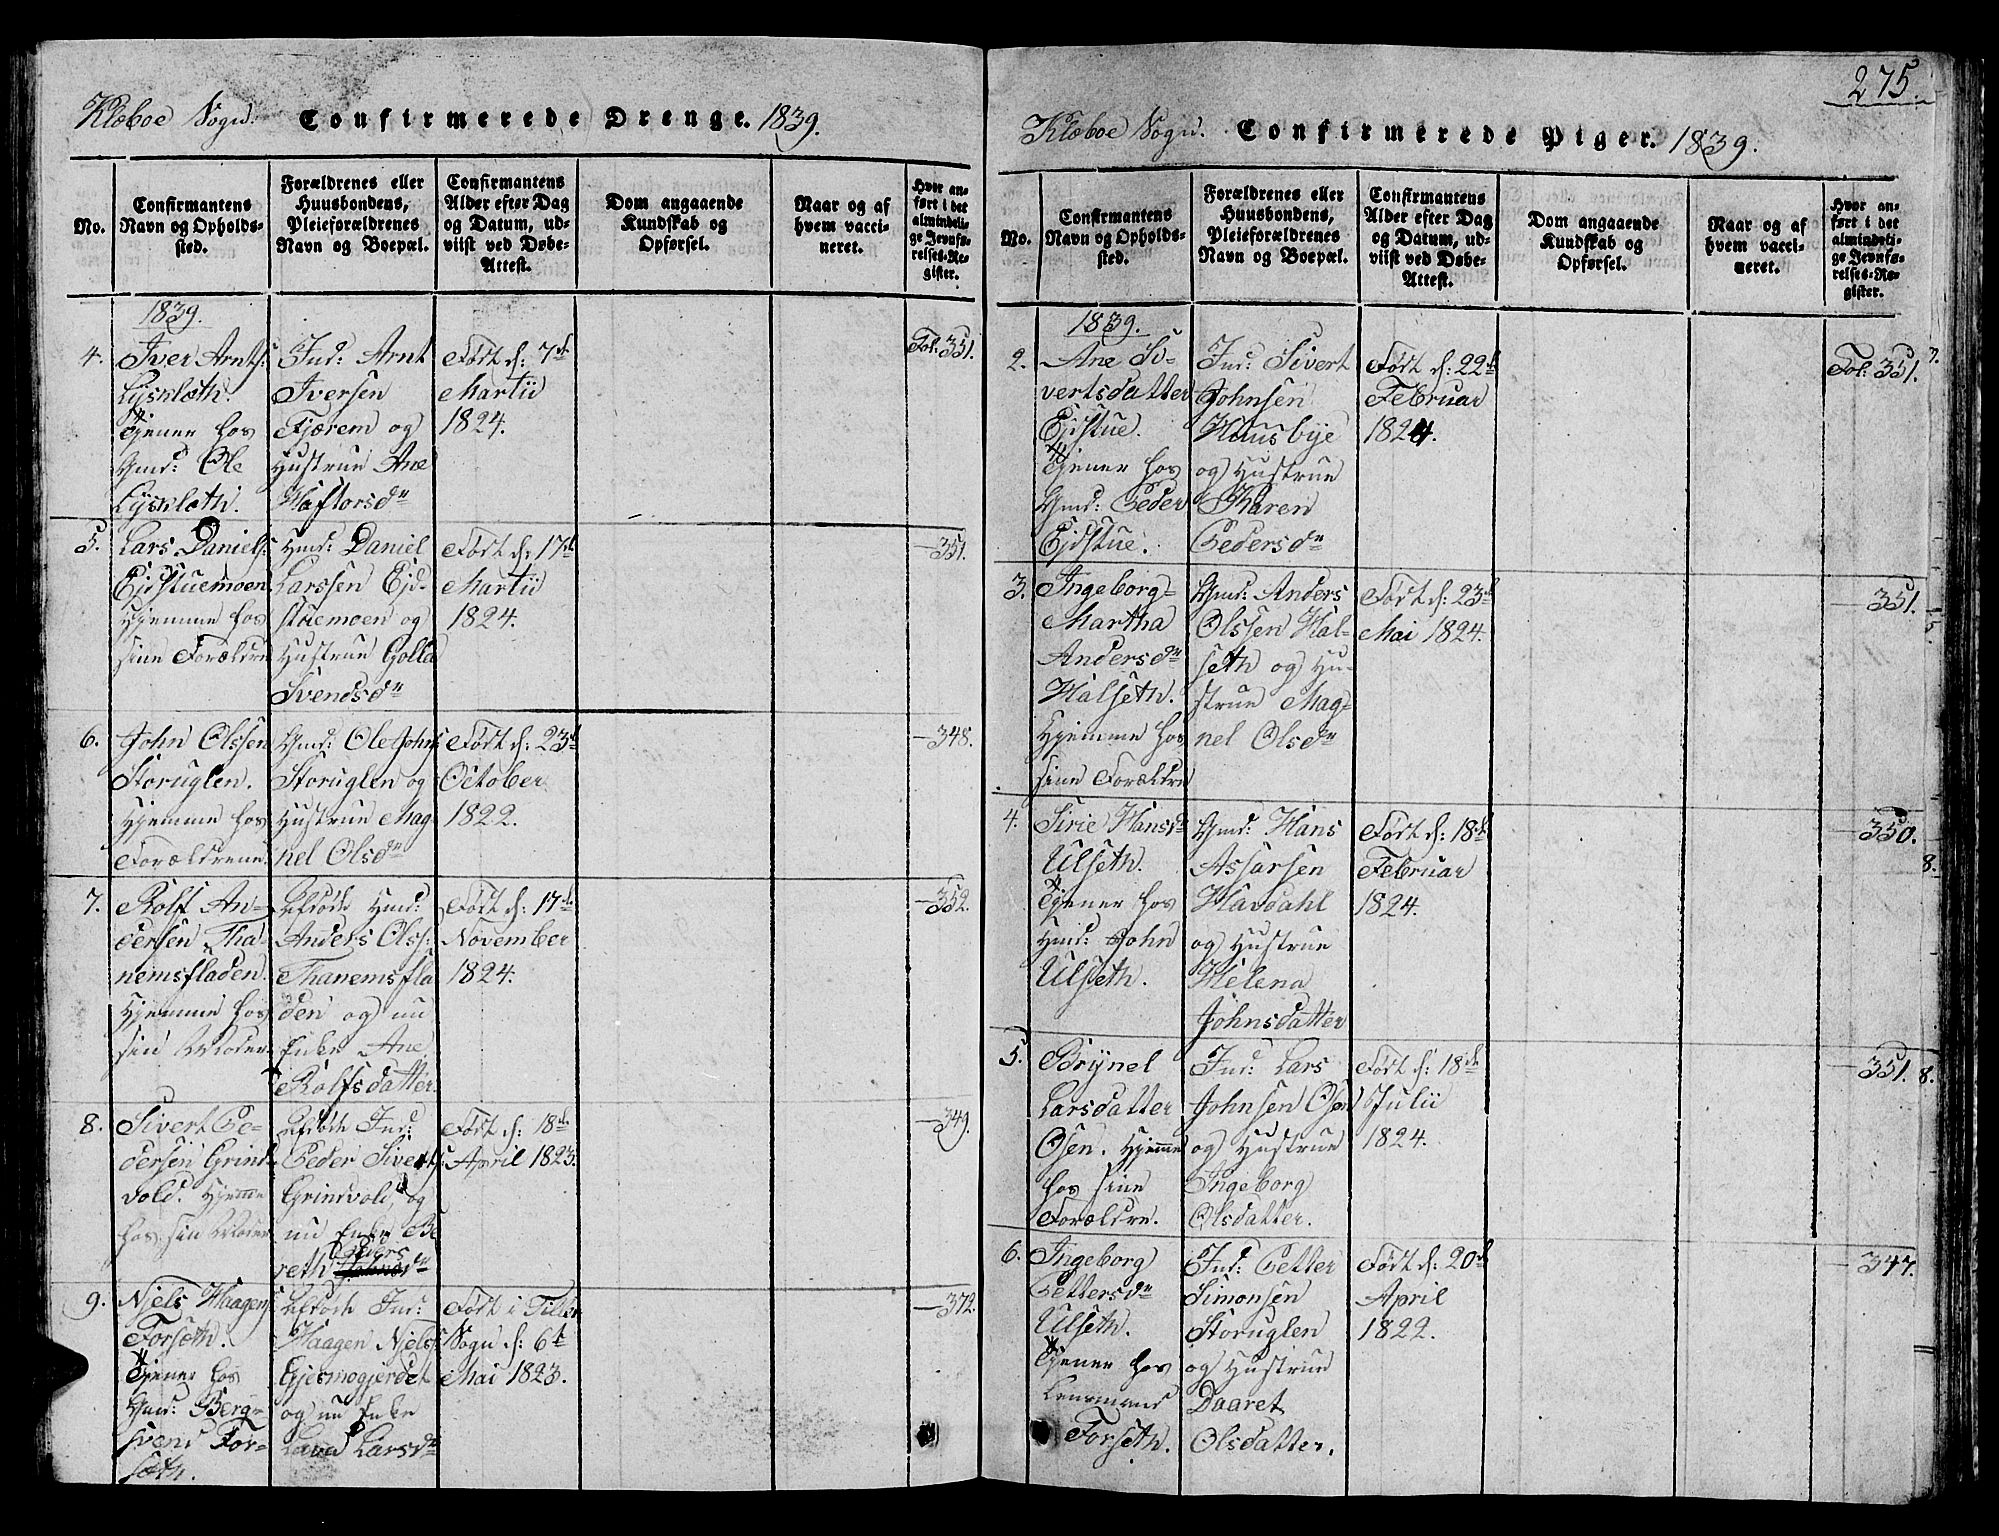 Klæboe Sogn. Confirmerede Drenge. 1839.
No.
Confirmantens
Navn og Opholds-
sted.
Forældrenes eller
Huusbondens,
Pleieforældrenes
Navn og Boepæl.
Confirmantens
Alder efter Dag
og Datum, ud-
viist ved Døbe-
Attest.
Dom angaaende
Kundskab og
Opførsel.
Naar og af
hvem vacci-
neret.
Hvor an-
ført i det
almindeli-
ge Jevnfø-
relses-Re-
gister.
1839.
4.
Iver Arnts:
Lysklæth.
Tjener hos
Gmd: Ole
Lysklæth.
Ind: Arnt
Iversen
Fjærem og
Hustrue Ane
Haftorsdr
Født d: 7de
Martii
1824.
Fol: 351.
5.
Lars Daniels:
Ejdstuemoen
Hjemme hos
sine Forældre
Hmd: Daniel
Larssen Ejd-
stuemoen og
Hustrue Golla
Svendsdr
Født d: 17de
Martii
1824.
—351.
6.
John Olssen
Storuglen.
Hjemme hos
Forældrene.
Gmd: Ole Johns:
Storuglen og
Hustrue Mag-
nel Olsdr
Født d: 23de
October
1822.
—348.
7.
Rolf An-
dersen Tha-
nemsfladen.
Hjemme hos
sin Moder.
Afdøde Hmd:
Anders Olss:
Thanemsfla
den og nu
Enke Ane
Rolfsdatter.
Født d: 17de
November
1824.
—352.
8.
Sivert Pe-
dersen Grind-
vold. Hjemme
hos sin Moder
Afdøde Ind:
Peder Siverts:
Grindvold, og
nu Enke Be
reth Peders dr
Født d: 18de
April 1823.
—349.
9.
Niels Haagens:
Forsæth.
Tjener hos
Gmd: Berg-
svend For-
sæth.
Afdøde Ind:
Haagen Niels:
Gjesmogjerdet
og nu Enke
Larsdr
Født i Tiller
Sogn d: 6te
Mai 1823.
—372.
275.
Klæboe Sogn. Confirmerede Piger. 1839.
No.
Confirmantens
Navn og Opholds-
sted.
Forældrenes eller
Huusbondens,
Pleieforældrenes
Navn og Boepæl.
Confirmantens
Alder efter Dag
og Datum, ud-
viist ved Døbe-
Attest.
Dom angaaende
Kundskab og
Opførsel.
Naar og af
hvem vacci-
neret.
Hvor an-
ført i det
almindeli-
ge Jevnfø-
relses-Re-
gister.
1839.
2.
Ane Si-
vertsdatter
Ejdstue.
Tjener hos
Gmd: Peder
Ejdstue.
Ind: Sivert
Johnsen
Huusbye
og Hustrue
Karen
Pedersdr
Født d: 22de
Februar
1824.
Fol: 351.
3.
Ingeborg-
Martha
Andersdr
Halseth.
Hjemme hos
sine Forældre
Gmd: Anders
Olssen Hal-
seth og Hu-
strue Mag-
nel Olsdr
Født d: 23de
Mai 1824.
—351.
4.
Sirie Hansdr
Ulseth.
Tjener hos
Hmd: John
Ulseth.
Gmd: Hans
Assarsen
Havdahl
og Hustrue
Helena
Johnsdatter
Født d: 18de
Februar
1824.
—350.
5.
Brynel
Larsdatter
Osen. Hjemme
hos sine
Forældre.
Ind: Lars
Johnsen Osen
og Hustrue
Ingeborg
Olsdatter.
Født d: 18de
Julii
1824.
—351.
6.
Ingeborg
Pettersdr
Ulseth.
Tjener hos
Lensmand
Forseth.
Ind: Petter
Simonsen
Storuglen
og Hustrue
Daaret
Olsdatter.
Født d: 20de
April
1822.
—347.